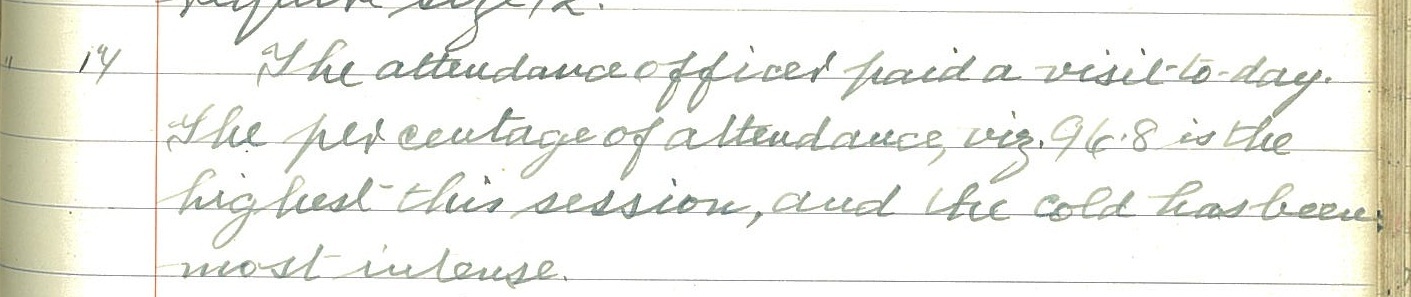 require size 12.
" 14 The attendance officer paid a visit to-day.
The per centage of attendance, viz. 96.8 is the
highest this session, and the cold has been
most intense.